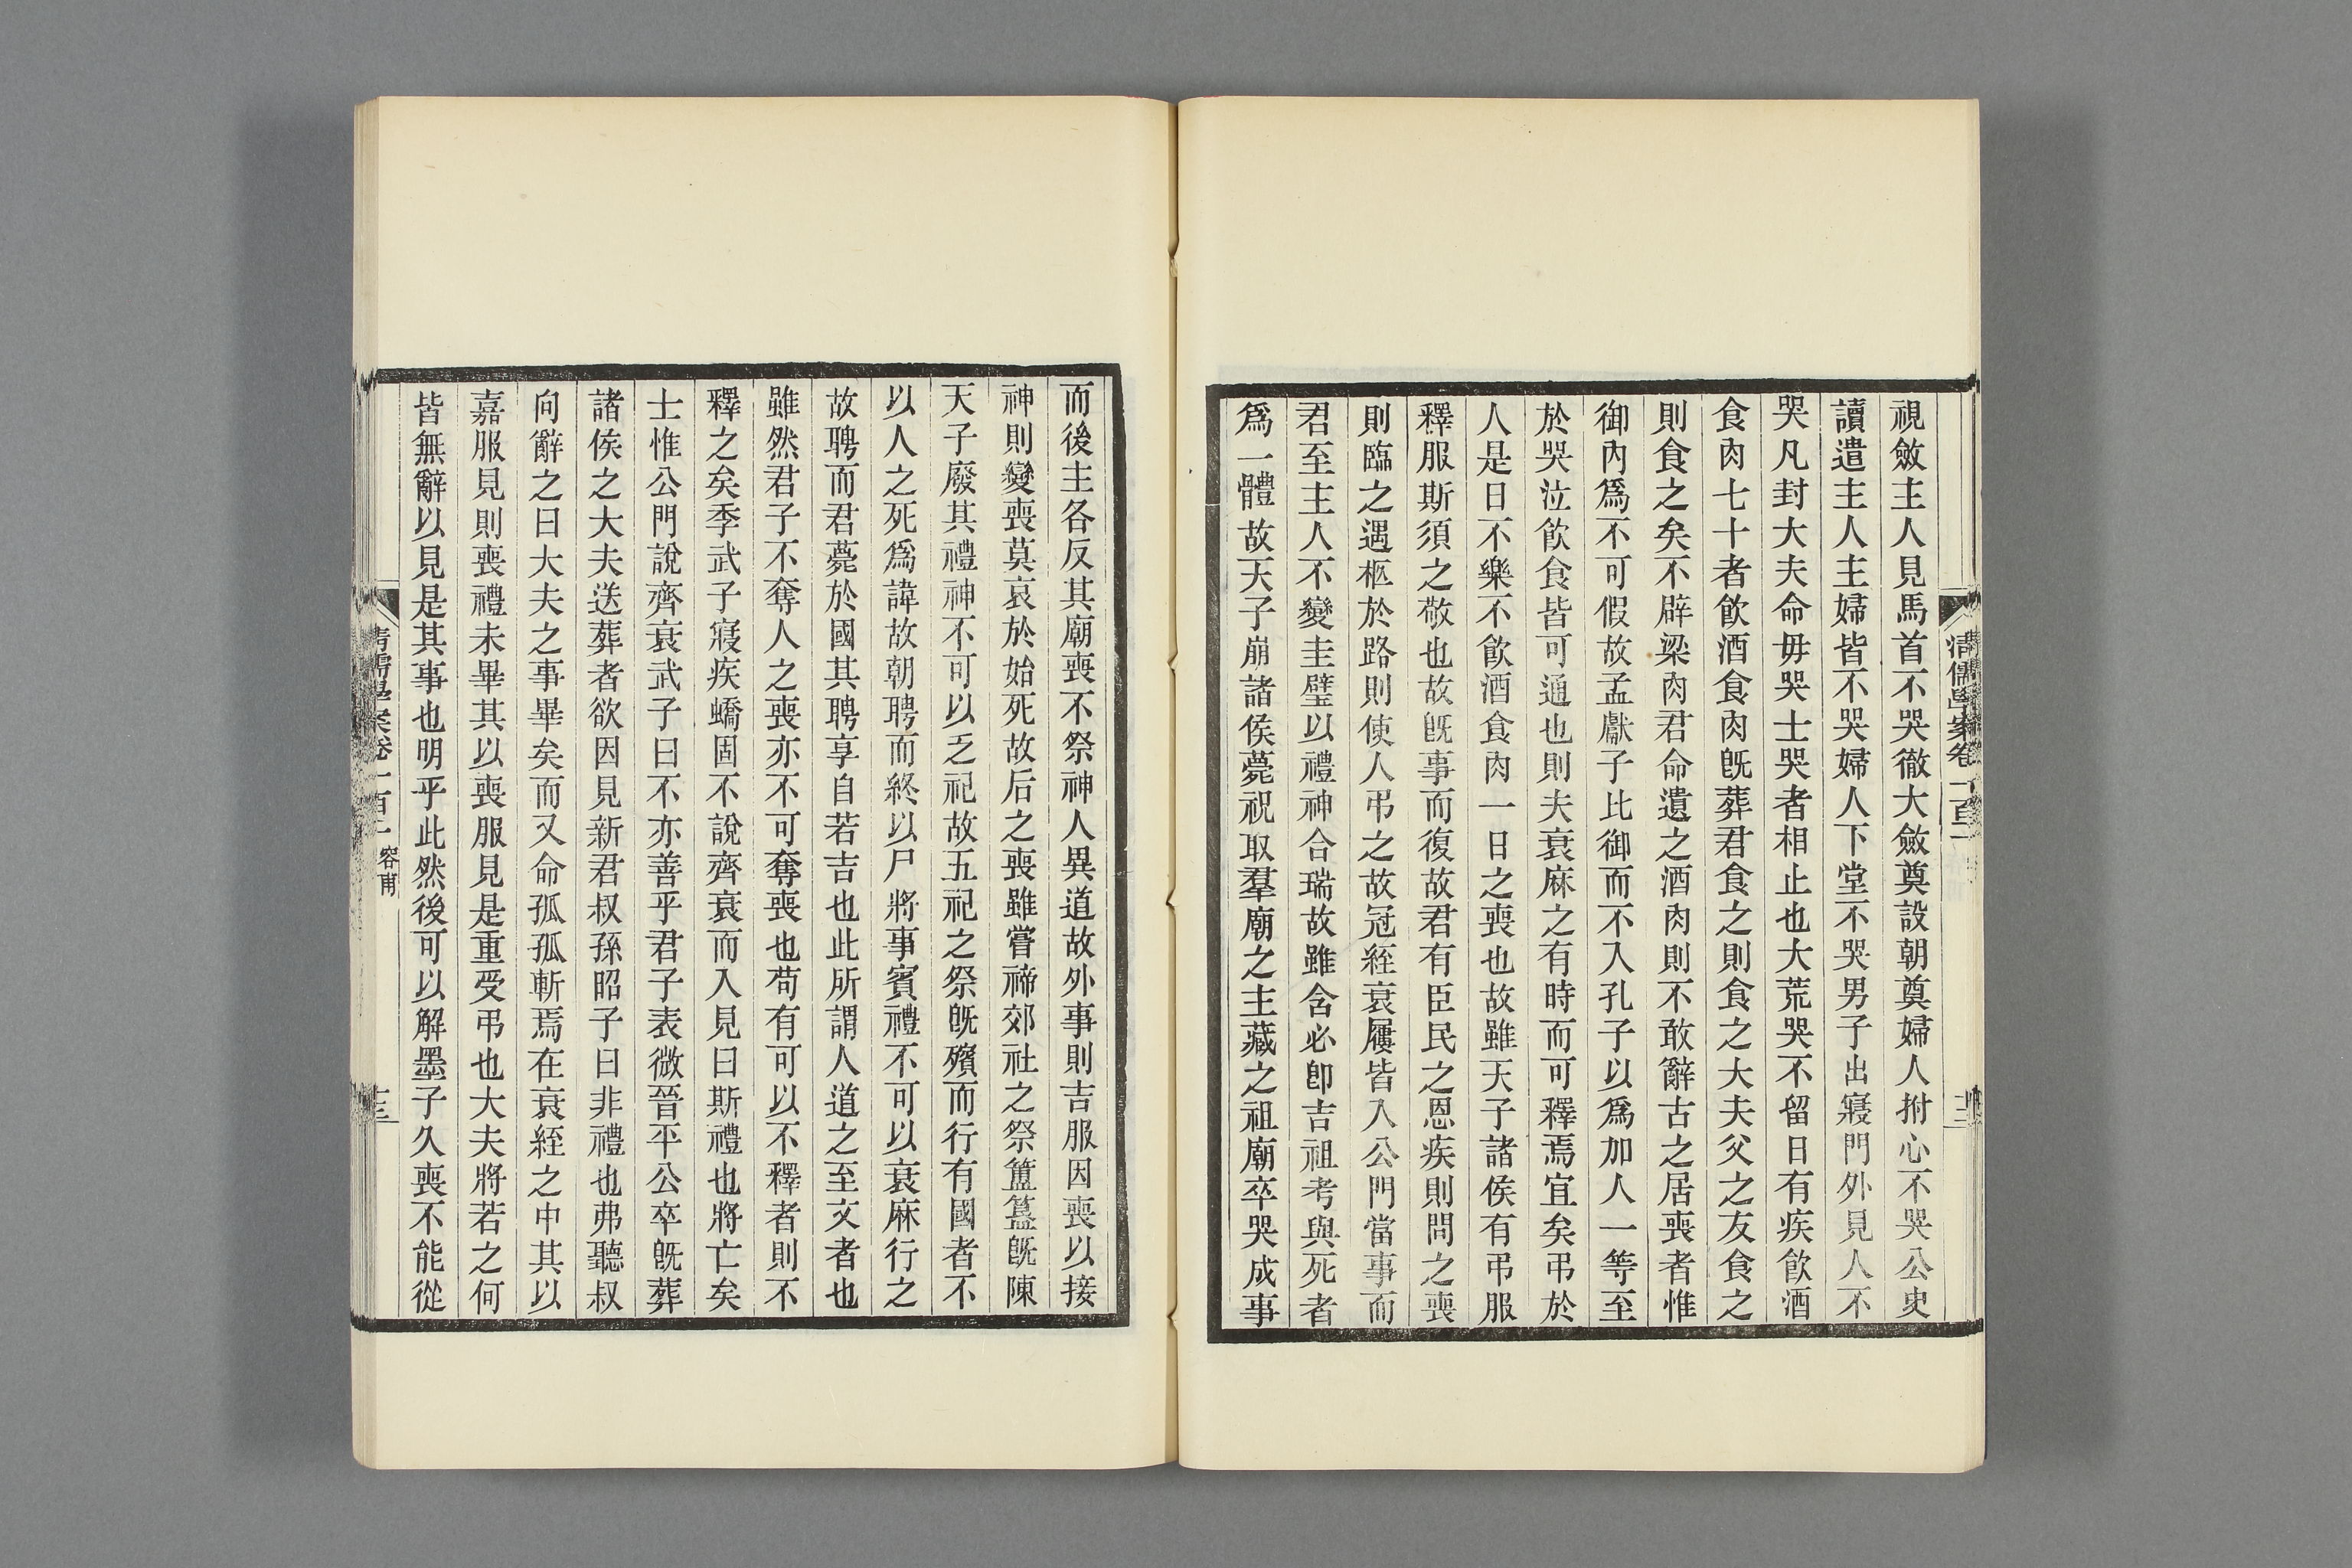 視斂主人見馬首不哭徹大斂奠設朝奠婦人拊心不哭公史
讀遣主人主婦皆不哭婦人下堂不哭男子出寢門外見人不
哭凡封大夫命毋哭士哭者相止也大荒哭不留日有疾飮酒
食肉七十者飮酒食肉旣葬君食之則食之大夫父之友食之
則食之矣不辟梁肉君命遺之酒肉則不敢辭古之居喪者惟
御內爲不可假故孟獻子比御而不入孔子以爲加人一等至
於哭泣飮食皆可通也則夫衰麻之有時而可釋焉宜矣弔於
人是日不樂不飮酒食肉一日之喪也故雖天子諸侯有弔服
釋服斯須之敬也故旣事而復故君有臣民之恩疾則問之喪
則臨之遇柩於路則使人弔之故冠絰衰屨皆入公門當事而
君至主人不變圭璧以禮神合瑞故雖含必卽吉祖考與死者
爲一體故天子崩諸侯薨祝取羣廟之主藏之祖廟卒哭成事
而後主各反其廟喪不祭神人異道故外事則吉服因喪以接
神則變喪莫哀於始死故后之喪雖嘗禘郊社之祭簠簋旣陳
天子廢其禮神不可以乏祀故五祀之祭旣殯而行有國者不
以人之死爲諱故朝聘而終以尸將事賓禮不可以衰麻行之
故聘而君薨於國其聘享自若吉也此所謂人道之至文者也
雖然君子不奪人之喪亦不可奪喪也苟有可以不釋者則不
釋之矣季武子寢疾蟜固不說齊衰而入見曰斯禮也將亡矣
士惟公門說齊衰武子曰不亦善乎君子表微晉平公卒旣葬
諸侯之大夫送葬者欲因見新君叔孫昭子曰非禮也弗聽叔
向辭之曰大夫之事畢矣而又命孤孤斬焉在衰絰之中其以
嘉服見則喪禮未畢其以喪服見是重受弔也大夫將若之何
皆無辭以見是其事也明乎此然後可以解墨子久喪不能從
清儒學案卷一百二 容甫